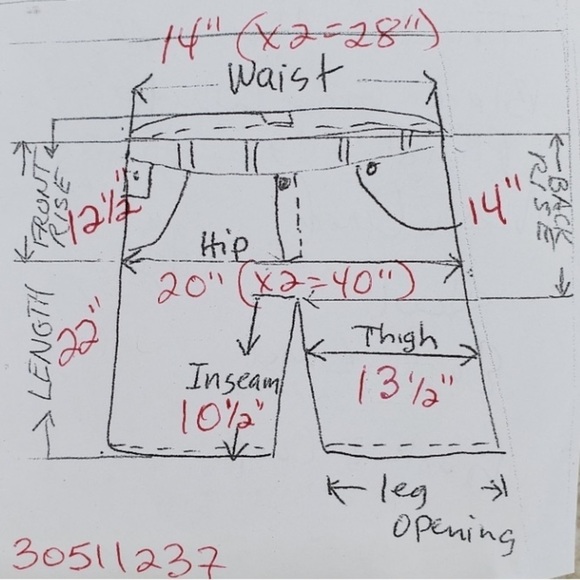 14" (x2=28")
Waist
FRONT
RISE
12½"
BACK
RISE
14"
Hip
20" (x2=40")
LENGTH
22"
Thigh
13½"
Inseam
10½"
leg
opening
30511237